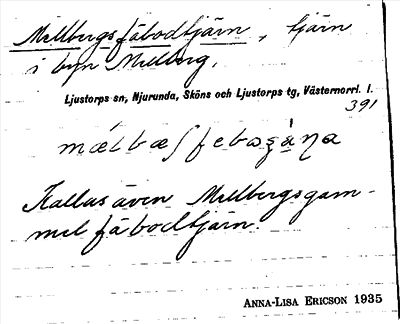 Mellbergsfäbodtjärn, tjärn
i byn Mellberg.
Ljustorps sn, Njurunda, Sköns och Ljustorps tg, Västernorrl. l.
391
Kallas även Mellbergsgam-
mel fäbodtjärn.
ANNA-LISA ERICSON 1935